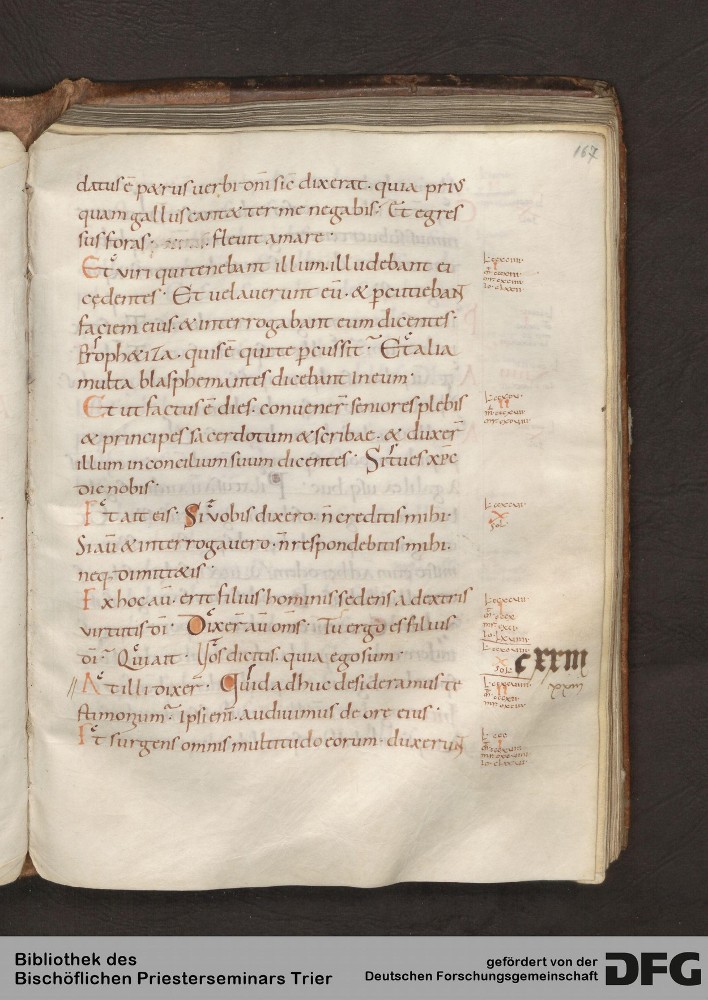 167
datus ē petrus verbi dn̄i sic̄ dixerat · quia priꝰ
quam gallus cantet ter me negabis · Et egres
sus foras · fleuit amare ·
Et viri qui tenebant illum · illudebant ei
cędentes · Et uelauerunt eū · & ꝑcutieban̄t
faciem eius · & interrogabant eum dicentes ·
Proph&iza · quis ē qui te ꝑcussit · Et alia
multa blasphemantes dicebant in eum ·
Et ut factus ē dies · conuener̄ seniores plebis
& principes sacerdotum & scribae · & duxer̄
illum in concilium suum dicentes · Si tu es xp̄c
dic nobis ·
Et ait eis · Si vobis dixero · n̄ creditis mihi ·
Si aū & interrogauero · n̄ respondebitis mihi ·
neq· dimitt&is ·
Ex hoc aū · erit filius hominis sedens a dextris
virtutis dī · Dixer̄ aū om̄s · Tu ergo es filius
dī · Qui ait · Vos dicitis · quia ego sum ·
At illi dixer̄ · Quid adhuc desideramus te
stimonium · Ipsi em̄ · audiuimus de ore eius ·
Et surgens omnis multitudo eorum · duxerun̄t
cxxiii
xxiii
Bibliothek des
Bischöflichen Priesterseminars Trier
gefördert von der
Deutschen Forschungsgemeinschaft
DFG